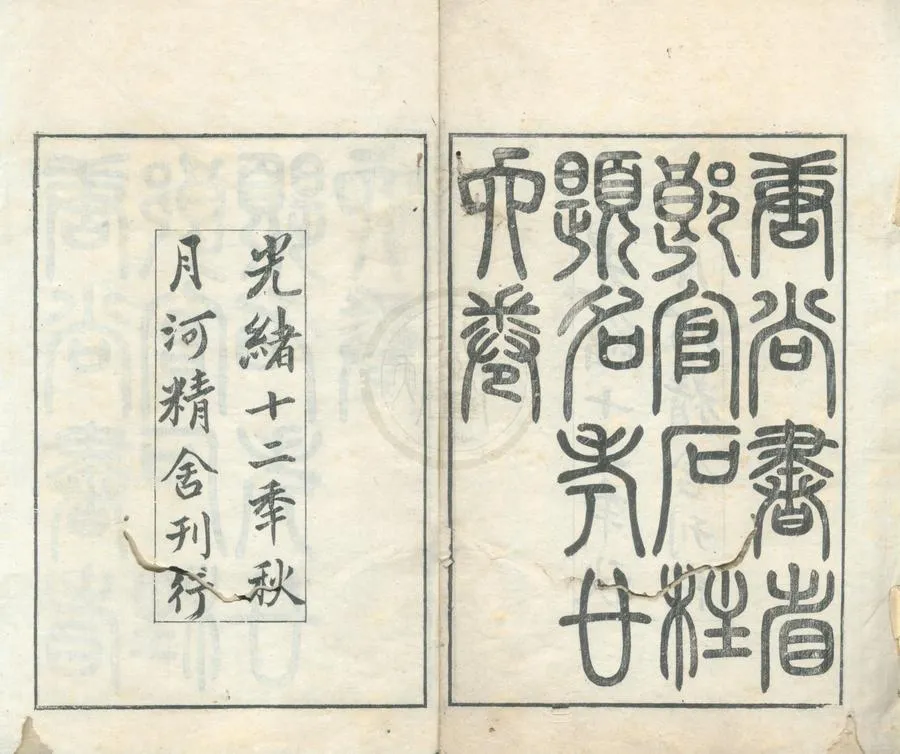 唐尚書省
郎官石柱
題名考廿
六卷
光緒十二年秋
月河精舍刊行